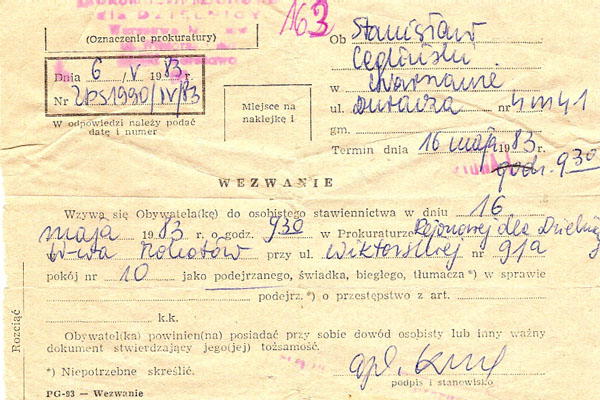 163
(Oznaczenie prokuratury)
Ob Stanisław
Cegliński
w Warszawie
ul. Dudarza nr 4 m 41
gm.
Termin dnia 16 maja 1983 r.
godz. 930
Dnia 6/V 1983
Nr 2PS1990/IV/83
W odpowiedzi należy podać
datę i numer
Miejsce na
naklejkę i
WEZWANIE
Wzywa się Obywatela(kę) do osobistego stawiennictwa w dniu 16
maja 1983 r. o godz. 930 w Prokuraturze Rejonowej dla Dzielnicy
W-wa Mokotów przy ul. Wiktorskiej nr 91a
pokój nr 10 jako podejrzanego, świadka, biegłego, tłumacza*) w sprawie
podejrz.*) o przestępstwo z art.
k.k.
Obywatel(ka) powinien(na) posiadać przy sobie dowód osobisty lub inny ważny
dokument stwierdzający jego(jej) tożsamość.
*) Niepotrzebne skreślić.
podpis i stanowisko
PG-93 — Wezwanie
Rozciąć